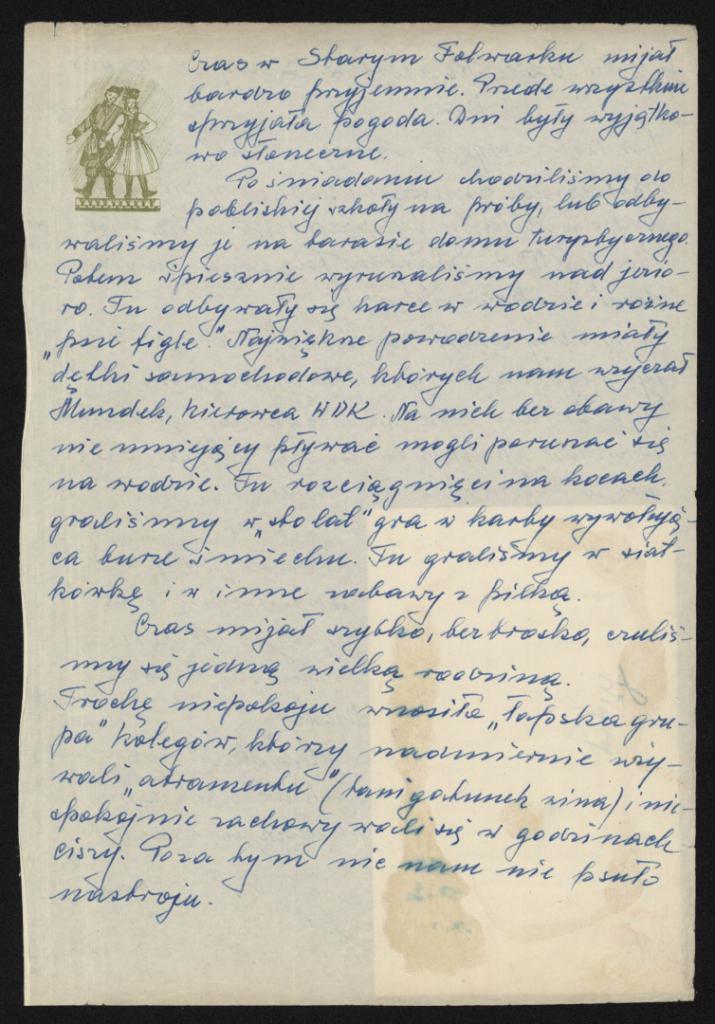 Czas w Starym Folwarku mijał
bardzo przyjemnie. Przede wszystkim
sprzyjała pogoda. Dni były wyjątko-
wo słoneczne.
Po śniadaniu chodziliśmy do
pobliskiej szkoły na próby, lub odby-
waliśmy je na tarasie domu turystycznego.
Potem śpiesznie wyruszaliśmy nad jezio-
ro. Tu odbywały się harce w wodzie i różne
"psie figle". Największe powodzenie miały
dętki samochodowe, których nam użyczał
Mundek, kierowca WDK. Na nich bez obawy
nie umiejący pływać mogli poruszać się
na wodzie. Tu rozciągnięci na kocach,
graliśmy w "sto lat" gra w karty wywołują-
ca burze śmiechu. Tu graliśmy w siat-
kówkę i w inne zabawy z piłką.
Czas mijał szybko, beztrosko, czuliś-
my się jedną wielką rodziną.
Trochę niepokoju wnosiła "łapska gru-
pa" kolegów, którzy nadmiernie uży-
wali "atramentu" (tani gatunek wina) i nie-
spokojnie zachowywali się w godzinach
ciszy. Poza tym nic nam nie psuło
nastroju.